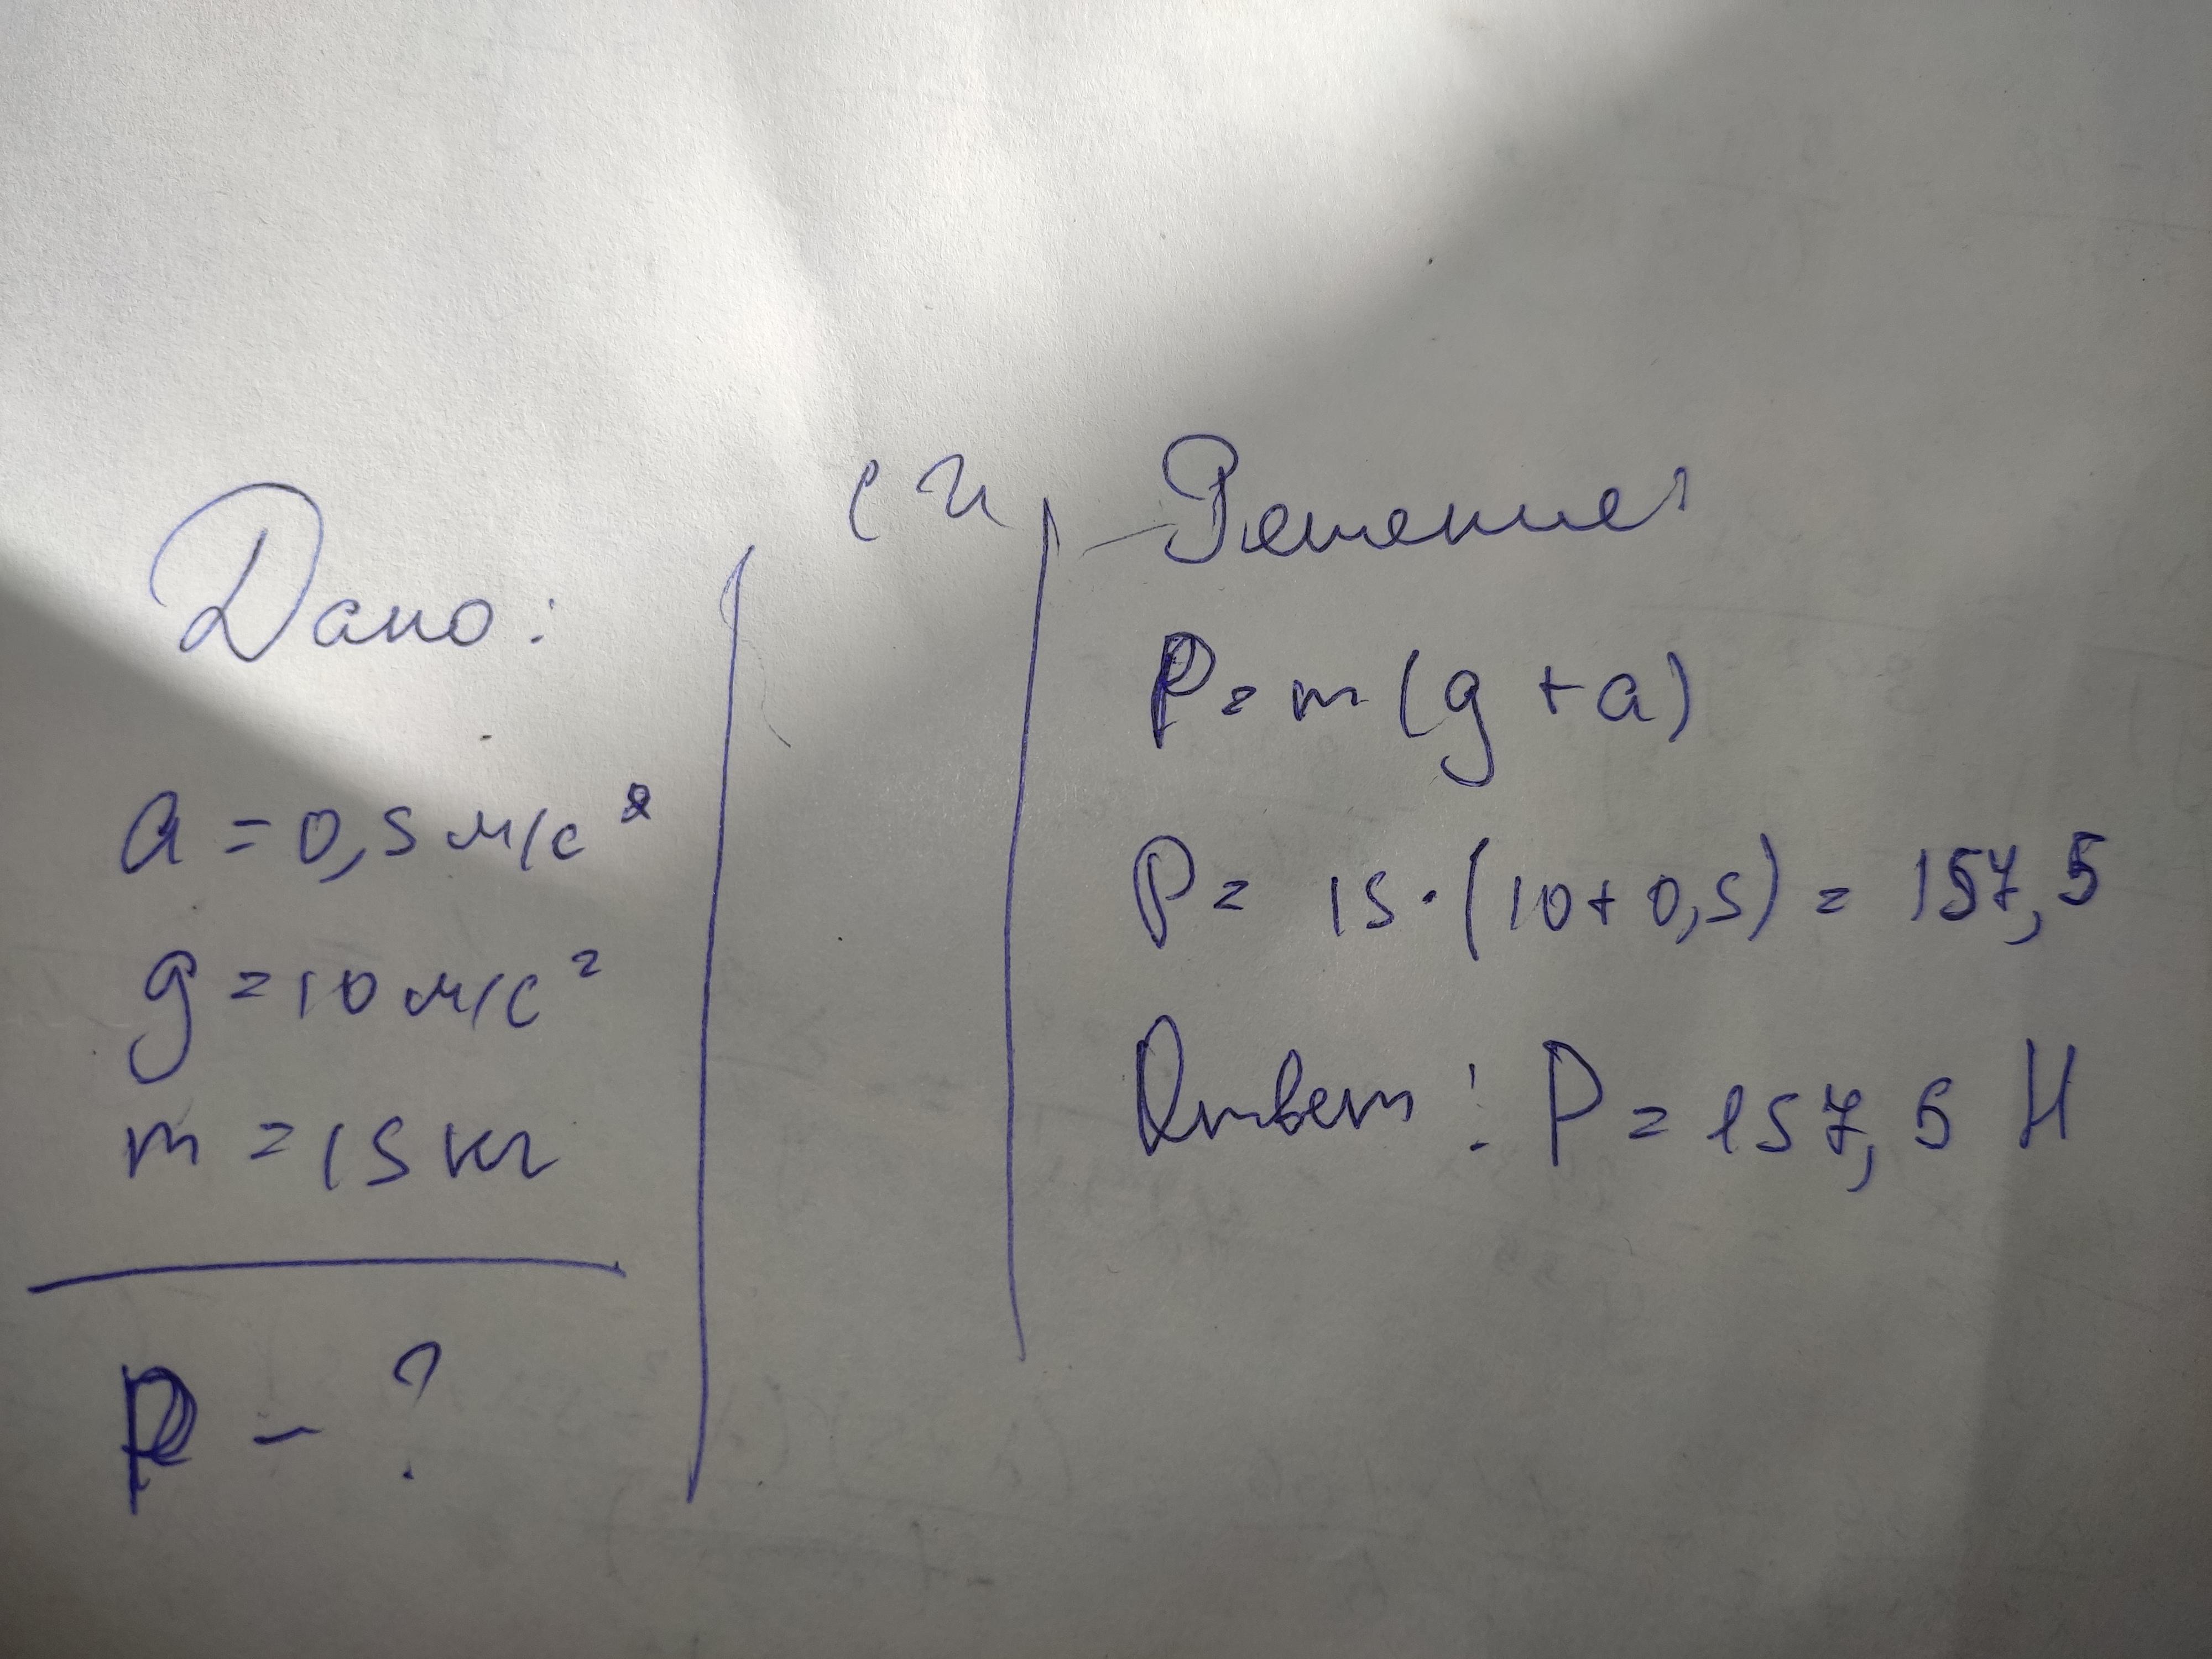 Дано:
a = 0,5 м/с²
g = 10 м/с²
m = 15 кг
P - ?
СИ
Решение:
P = m (g + a)
P = 15 · (10 + 0,5) = 157,5
Ответ: P = 157,5 Н